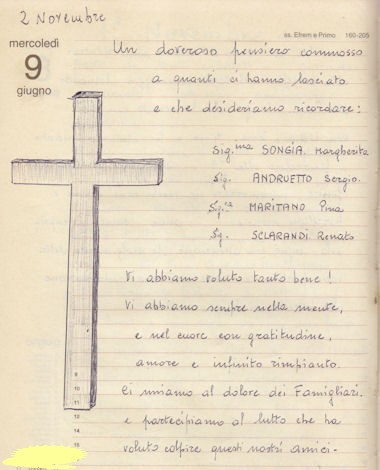 2 Novembre
ss. Efrem e Primo 160-205
mercoledì
9
giugno
Un doveroso pensiero commosso
a quanti ci hanno lasciato
e che desideriamo ricordare:
Sig.ina SONGIA Margherita
Sig. ANDRUETTO Sergio.
Sig.ra MARITANO Pina
Sg. SCLARANDI Renato
Vi abbiamo voluto tanto bene!
Vi abbiamo sempre nella mente,
e nel cuore con gratitudine,
amore e infinito rimpianto.
Ci uniamo al dolore dei Famigliari.
e partecipiamo al lutto che ha
voluto colpire questi nostri amici.
9
10
11
12
14
15